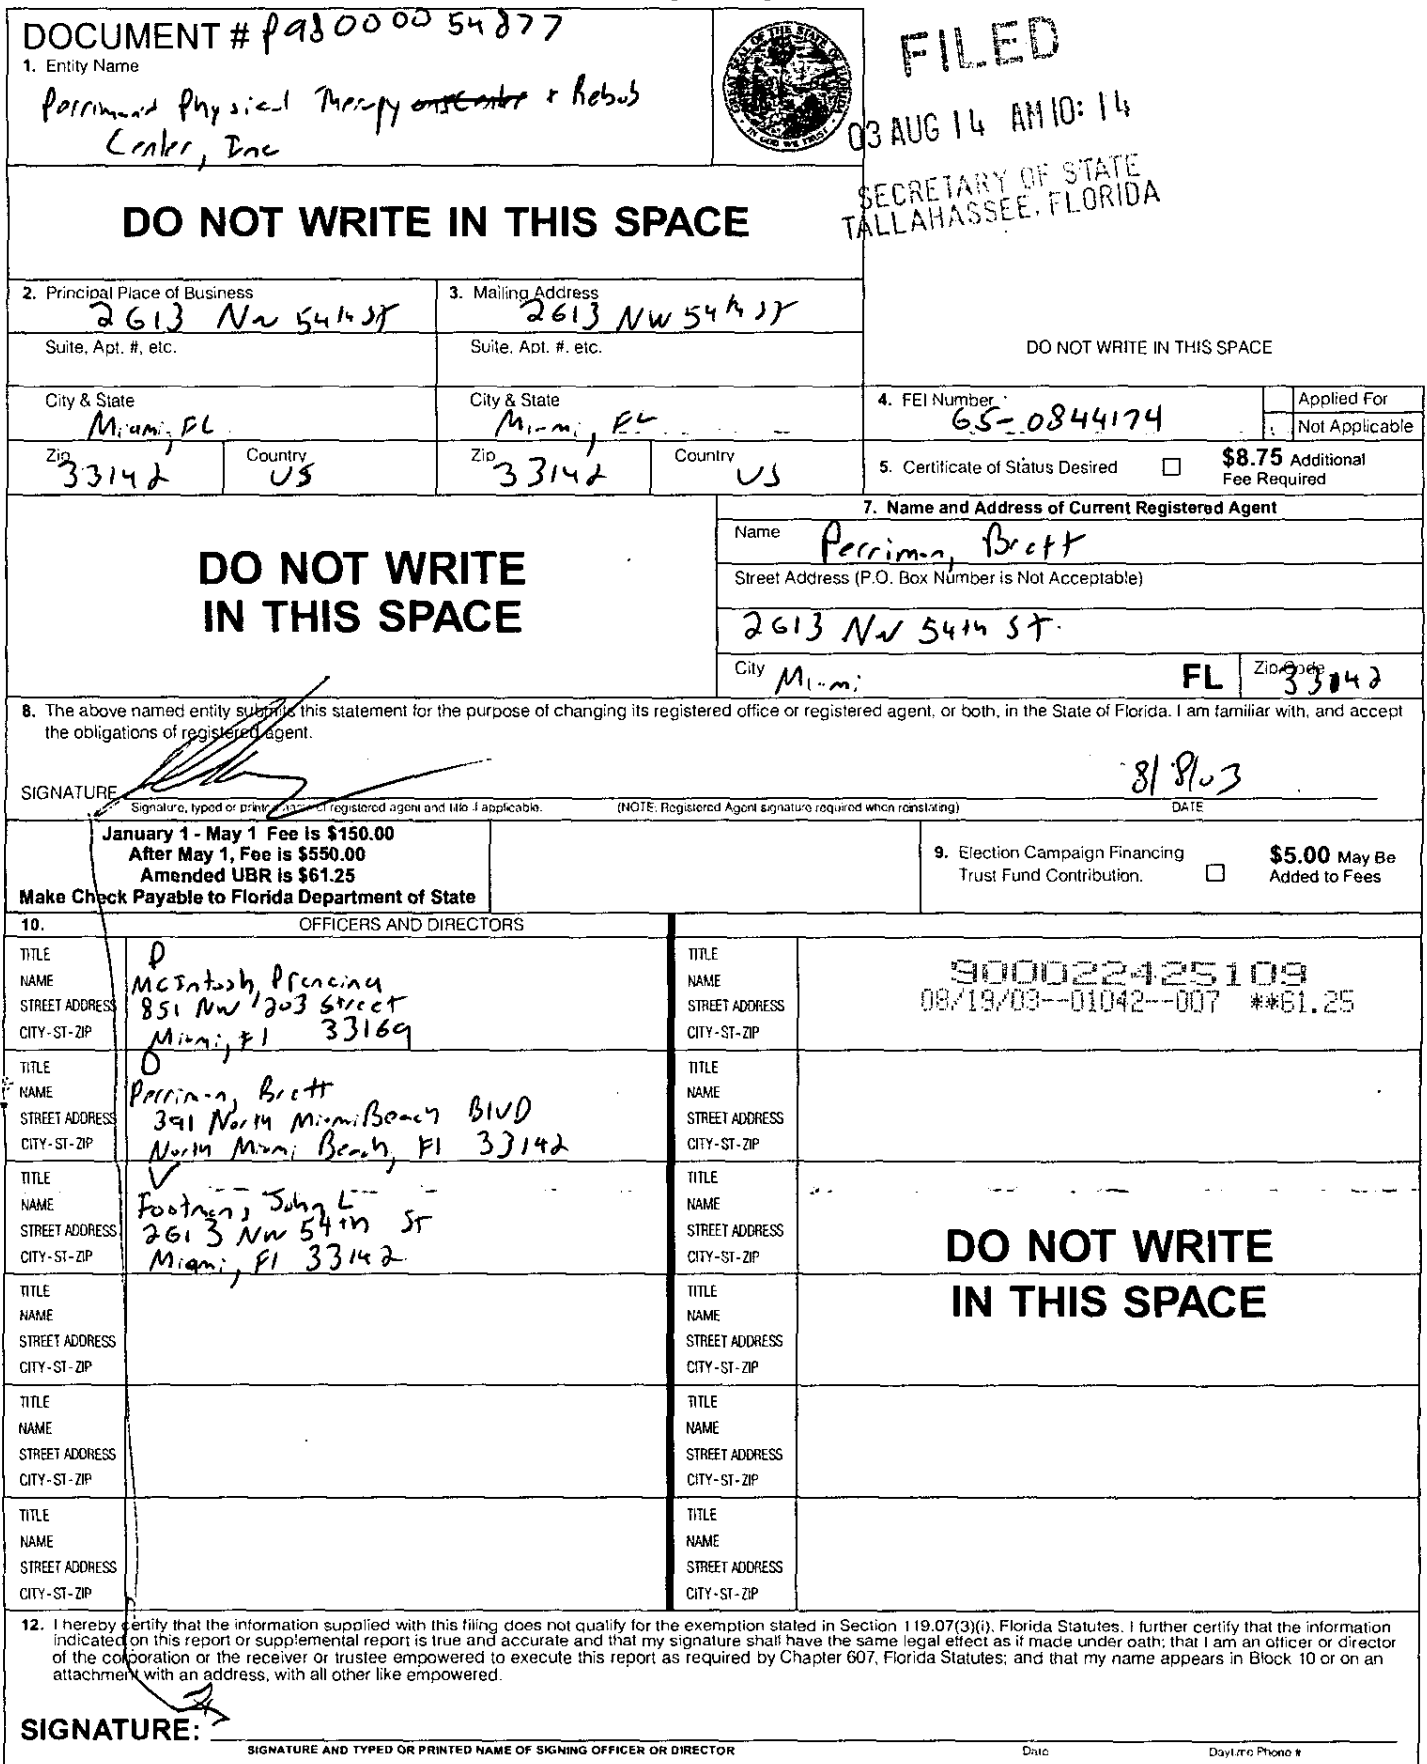 DOCUMENT # P98000054877
1. Entity Name
Perriman's Physical Therapy + Rehab
Center, Inc
FILED
03 AUG 14 AM 10: 14
SECRETARY OF STATE
TALLAHASSEE, FLORIDA
DO NOT WRITE IN THIS SPACE
2. Principal Place of Business
2613 NW 54th St
3. Mailing Address
2613 NW 54th St
Suite, Apt. #, etc.
Suite, Apt. #. etc.
DO NOT WRITE IN THIS SPACE
City & State
Miami, FL
City & State
Miami, FL
4. FEI Number
65-0844174
Applied For
Not Applicable
Zip
33142
Country
US
Zip
33142
Country
US
5. Certificate of Status Desired
$8.75 Additional
Fee Required
DO NOT WRITE
IN THIS SPACE
7. Name and Address of Current Registered Agent
Name Perriman, Brett
Street Address (P.O. Box Number is Not Acceptable)
2613 NW 54th St.
City Miami FL Zip Code 33142
8. The above named entity submits this statement for the purpose of changing its registered office or registered agent, or both, in the State of Florida. I am familiar with, and accept
the obligations of registered agent.
SIGNATURE 8/8/03
Signature, typed or printed name of registered agent and title if applicable. (NOTE: Registered Agent signature required when reinstating) DATE
January 1 - May 1 Fee is $150.00
After May 1, Fee is $550.00
Amended UBR is $61.25
Make Check Payable to Florida Department of State
9. Election Campaign Financing
Trust Fund Contribution.
$5.00 May Be
Added to Fees
10. OFFICERS AND DIRECTORS
TITLE P
NAME McIntosh,
STREET ADDRESS 851 NW 203 Street
CITY-ST-ZIP Miami, Fl 33169
TITLE
NAME
STREET ADDRESS
CITY-ST-ZIP
900022425109
08/19/03--01042--007 **61.25
TITLE D
NAME Perriman, Brett
STREET ADDRESS 391 North Miami Beach BLVD
CITY-ST-ZIP North Miami Beach, Fl 33142
TITLE
NAME
STREET ADDRESS
CITY-ST-ZIP
TITLE V
NAME Footman, John L
STREET ADDRESS 2613 NW 54th St
CITY-ST-ZIP Miami, Fl 33142
TITLE
NAME
STREET ADDRESS
CITY-ST-ZIP
DO NOT WRITE
IN THIS SPACE
TITLE
NAME
STREET ADDRESS
CITY-ST-ZIP
TITLE
NAME
STREET ADDRESS
CITY-ST-ZIP
TITLE
NAME
STREET ADDRESS
CITY-ST-ZIP
TITLE
NAME
STREET ADDRESS
CITY-ST-ZIP
TITLE
NAME
STREET ADDRESS
CITY-ST-ZIP
TITLE
NAME
STREET ADDRESS
CITY-ST-ZIP
12. I hereby certify that the information supplied with this filing does not qualify for the exemption stated in Section 119.07(3)(i), Florida Statutes. I further certify that the information
indicated on this report or supplemental report is true and accurate and that my signature shall have the same legal effect as if made under oath; that I am an officer or director
of the corporation or the receiver or trustee empowered to execute this report as required by Chapter 607, Florida Statutes; and that my name appears in Block 10 or on an
attachment with an address, with all other like empowered.
SIGNATURE:
SIGNATURE AND TYPED OR PRINTED NAME OF SIGNING OFFICER OR DIRECTOR Date Daytime Phone #